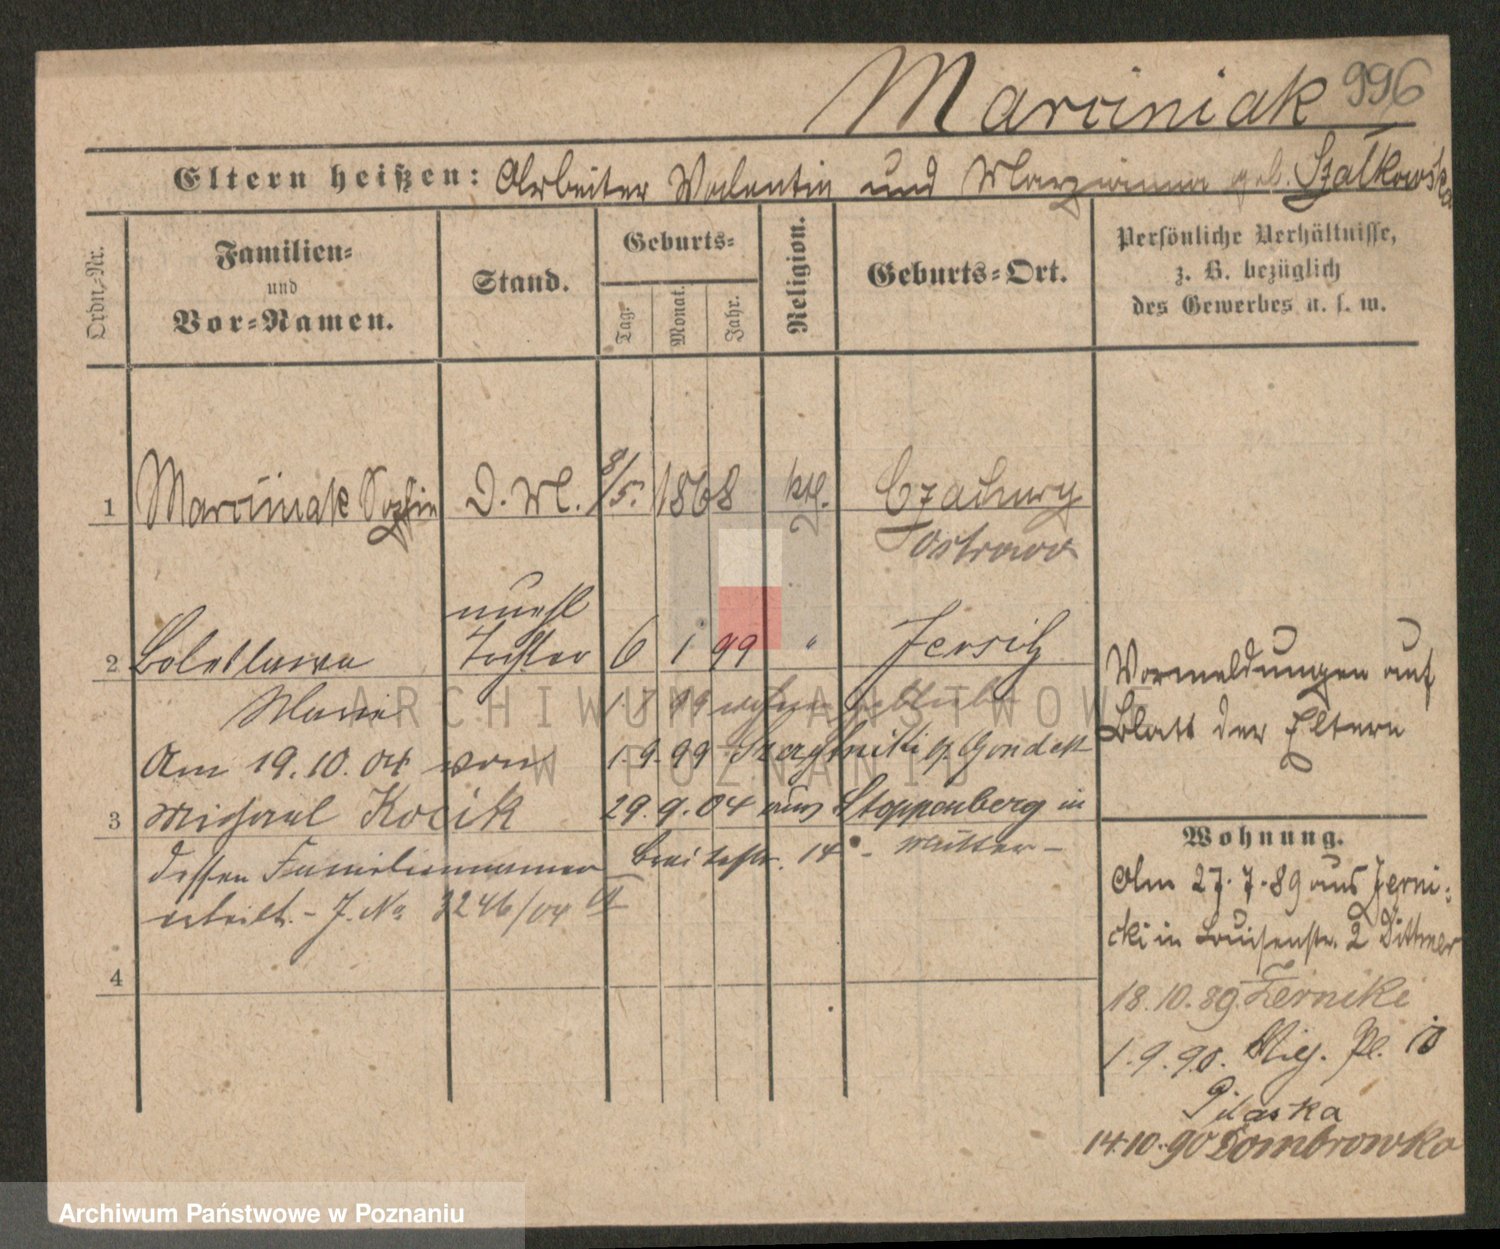 Marciniak 996
Eltern heißen: Arbeiter Valentin und Marzianna geb. Szałkowska
Ordn.-Nr.
Familien- und Vor-Namen.
Stand.
Geburts-
Tag.
Monat.
Jahr.
Religion.
Geburts-Ort.
Persönliche Verhältnisse,
z. B. bezüglich
des Gewerbes u. s. w.
1 Marciniak Sofia D. M. 8/5. 1868 ktl. Czachury
Ostrowo
unehl
2 Boleslawa Tochter 6 1 99 " Jersitz
Marie
1.8.99
Am 19.10.04 von 1.9.99
3 Michael Kocik 29.9.04 aus Stoppenberg in
dessen Familiennamen Breitestr. 14 - Mutter -
erteilt. - J. No 3246/04
4
Vormeldungen auf
Blatt der Eltern
Wohnung.
Am 27.7.89 aus Zerni-
cki in Louisenstr. 2 Dittmer
18.10.89 Zernicki
1.9.90. Pl. 10
Pilaska
14.10.90 Dombrowka
ARCHIWUM PAŃSTWOWE
W POZNANIU
Archiwum Państwowe w Poznaniu